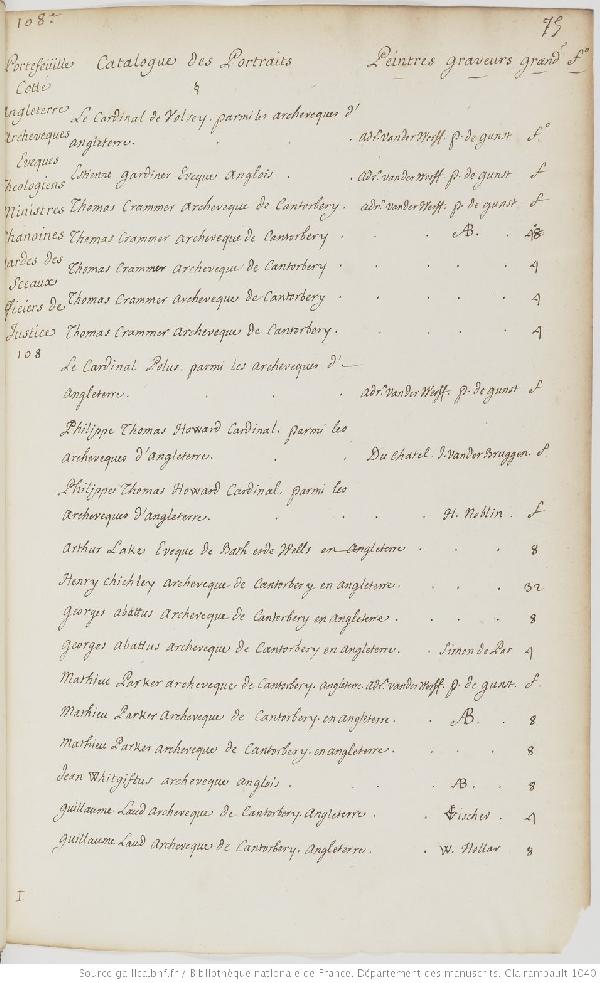 108.e
75
Portefeuille Catalogue des Portraits Peintres graveurs grand.r f.o
Cotté
Angleterre
Archeveques
Eveques
Theologiens
Ministres
Chanoines
gardes des
Sceaux
officiers de
Justice
108
Le Cardinal de Volsey. parmi les archeveques d'
angleterre. adr. vander Werff. p. de gunst f.o
Estienne gardiner Eveque Anglois. adr. vander Werff. p. de gunst f
Thomas Crammer Archeveque de Cantorbery. adr. vander Werff. p. de gunst f
Thomas Crammer Archeveque de Cantorbery. AB. 8
Thomas Crammer Archeveque de Cantorbery. 4
Thomas Crammer Archeveque de Cantorbery. 4
Thomas Crammer Archeveque de Cantorbery. 4
Le Cardinal Polus. parmi les archeveques d'
angleterre. adr. vander Werff. p. de gunst f
Philippe Thomas Howard Cardinal. parmi les
archeveques d'angleterre. Du Chatel. J. vander Bruggen. f.
Philippe Thomas Howard Cardinal. parmi les
archeveques d'angleterre. H. Noblin. f
Arthur Lake Eveque de Bath et de Wells en Angleterre 8
Henry Chichley archeveque de Cantorbery en angleterre. 32
georges abattus Archeveque de Cantorbery en angleterre. 8
georges abattus archeveque de Cantorbery en angleterre. Simon de Pas 4
Mathieu Parker archeveque de Cantorbery. angleterre. adr. vander Werff. p. de gunst. f.
Mathieu Parker Archeveque de Cantorbery. en angleterre. AB. 8
Mathieu Parker archeveque de Cantorbery. en angleterre. 8
Jean Whitgiftus archeveque anglois. AB. 8
guillaume Laud Archeveque de Cantorbery. Angleterre. Vischer. 4
guillaume Laud Archeveque de Cantorbery. Angleterre. W. Hollar. 8
I
Source gallica.bnf.fr / Bibliothèque nationale de France. Département des manuscrits. Clairambault 1040